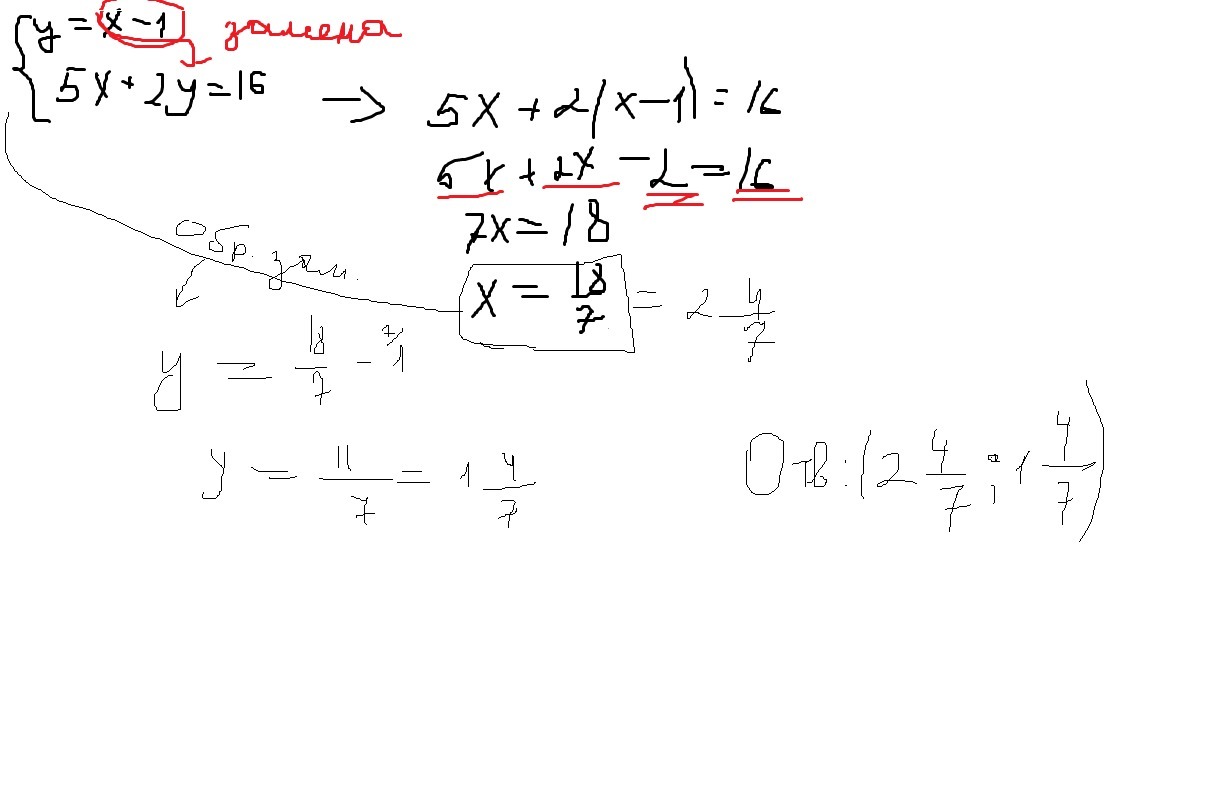 y = x - 1 замена
5x + 2y = 16
→ 5x + 2(x - 1) = 16
5x + 2x - 2 = 16
7x = 18
x = 18/7 = 2 4/7
Обр. зам.
y = 18/7 - 7/1
y = 11/7 = 1 4/7
Отв: (2 4/7 ; 1 4/7)